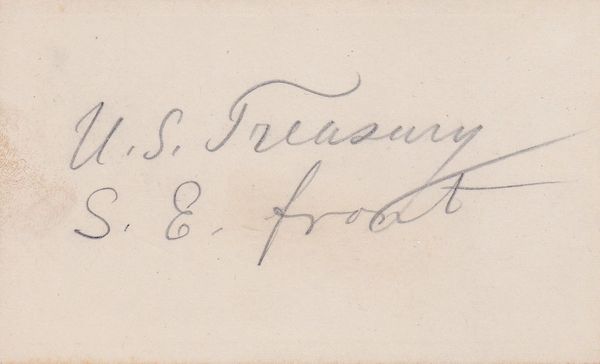 U.S. Treasury
S. E. front